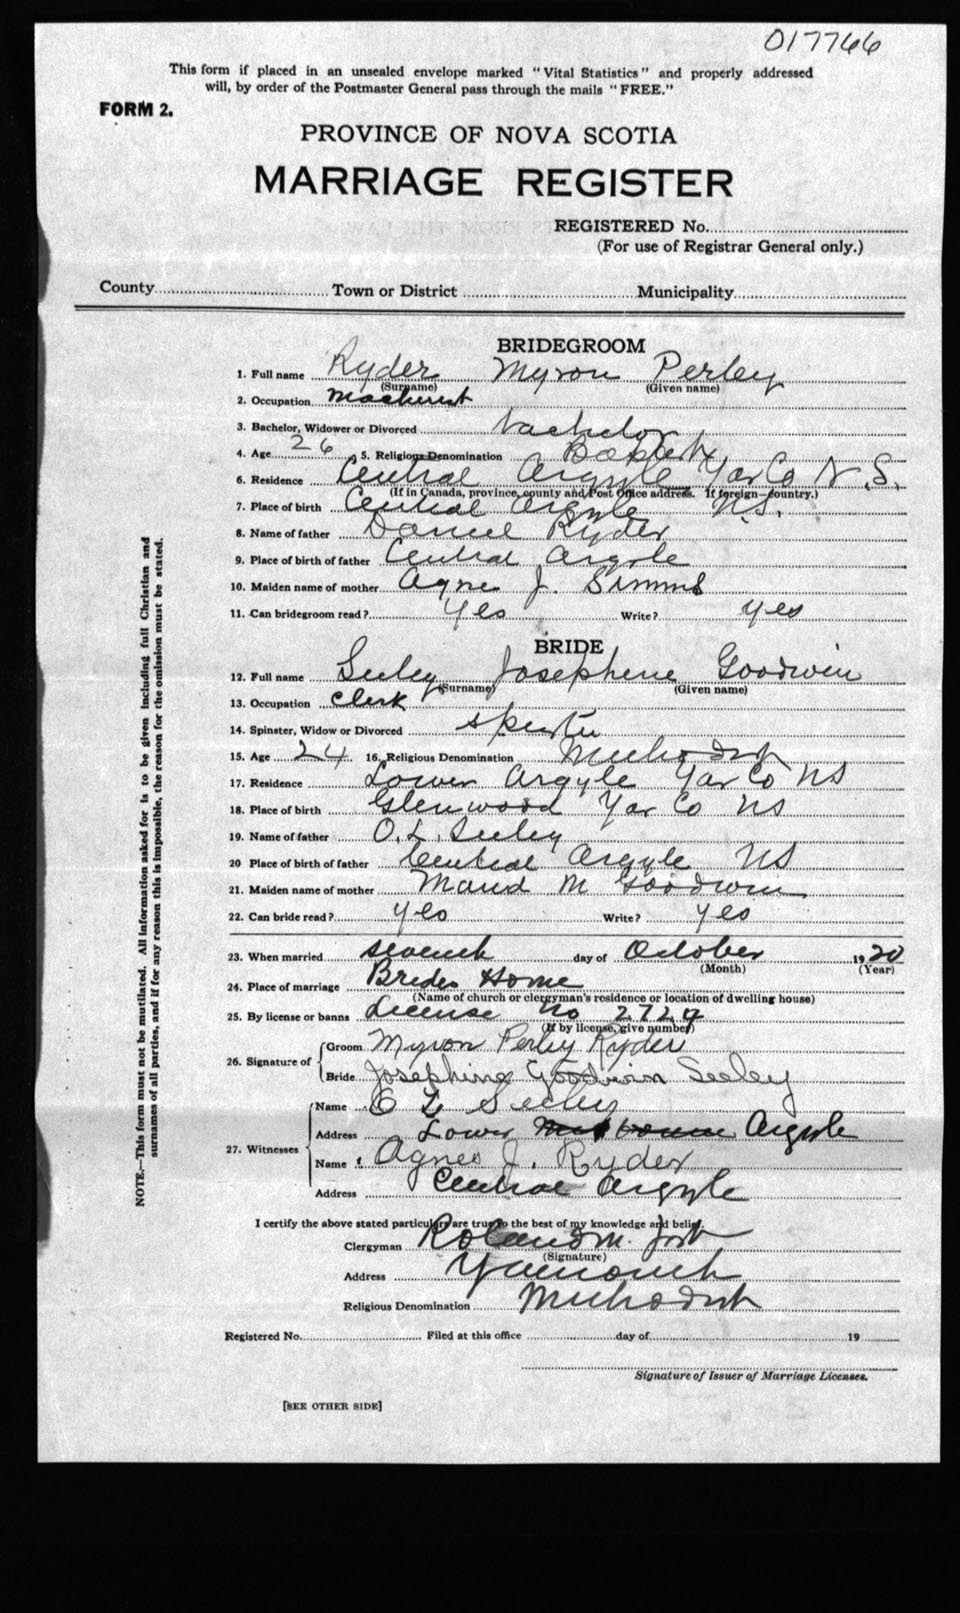 017766
This form if placed in an unsealed envelope marked "Vital Statistics" and properly addressed
will, by order of the Postmaster General pass through the mails "FREE."
FORM 2.
PROVINCE OF NOVA SCOTIA
MARRIAGE REGISTER
REGISTERED No.
(For use of Registrar General only.)
County Town or District Municipality
BRIDEGROOM
1. Full name Ryder Myron Perley
(Surname) (Given name)
2. Occupation machinist
3. Bachelor, Widower or Divorced bachelor
4. Age 26 5. Religious Denomination Baptist
6. Residence Central Argyle Yar Co N.S.
(If in Canada, province, county and Post Office address. If foreign—country.)
7. Place of birth Central Argyle N.S.
8. Name of father Daniel Ryder
9. Place of birth of father Central Argyle
10. Maiden name of mother Agnes J. Simms
11. Can bridegroom read? yes Write? yes
BRIDE
12. Full name Seeley Josephene Goodwin
(Surname) (Given name)
13. Occupation Clerk
14. Spinster, Widow or Divorced spinster
15. Age 24 16. Religious Denomination Methodist
17. Residence Lower Argyle Yar Co NS
18. Place of birth Glenwood Yar Co NS
19. Name of father O.L. Seeley
20 Place of birth of father Central Argyle NS
21. Maiden name of mother Maud M Goodwin
22. Can bride read? yes Write? yes
23. When married seventh day of October 1920
(Month) (Year)
24. Place of marriage Brides Home
(Name of church or clergyman's residence or location of dwelling house)
25. By license or banns License No 2729
(If by license, give number)
26. Signature of Groom Myron Perley Ryder
Bride Josephine Goodwin Seeley
27. Witnesses Name O L Seeley
Address Lower Argyle
Name Agnes J. Ryder
Address Central Argyle
I certify the above stated particulars are true to the best of my knowledge and belief.
Clergyman Roland M. Jost
(Signature)
Address Yarmouth
Religious Denomination Methodist
Registered No. Filed at this office day of 19
Signature of Issuer of Marriage Licenses.
[SEE OTHER SIDE]
NOTE.—This form must not be mutilated. All information asked for is to be given including full Christian and
surnames of all parties, and if for any reason this is impossible, the reason for the omission must be stated.